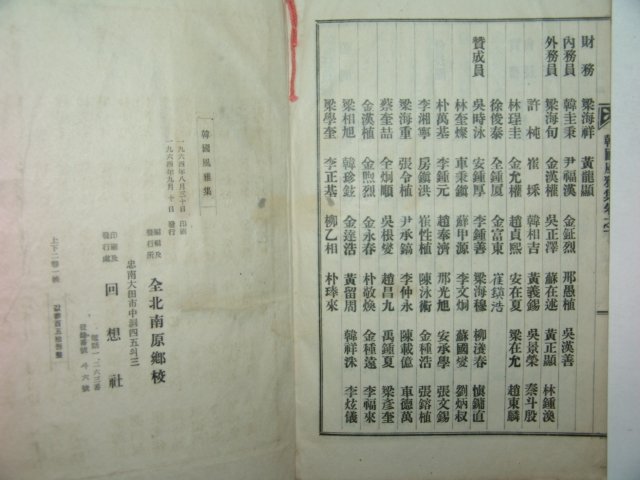 財務 梁海祥 黃龍顯
內務員 韓圭秉 尹福漢 金鉦烈 邢愚植 吳漢善
外務員 梁海旬 金漢權 吳正澤 蘇在述 黃正顯 林鍾漁
許炖 崔埰 韓相吉 黃義錫 吳景榮 秦斗殷
林珵圭 金允權 趙貞熙 安在夏 梁在允 趙東麟
徐俊泰 全鍾厦 金富東 崔鎮浩
贊成員 吳時泳 安鍾厚 李鍾善 梁海穆 柳淩春 愼鏞直
林奎燦 車秉鎭 蘇甲源 李文炯 蘇國燮 劉炳叔
朴萬基 李鍾元 趙奉濟 邢光旭 安承學 張文錫
李湘寧 房鎭洪 崔性植 陳泳術 金種浩 張鎔植
梁海重 張令植 尹承鎬 李仲永 陳載億 車德萬
蔡奎喆 全炯順 吳根燮 趙昌九 萬鍾夏 梁彦奎
金漢植 金煦烈 金永春 朴敬煥 金種遠 李福來
梁相旭 韓珍鉉 金達浩 黃留周 韓祥洙 李炫儀
梁學奎 李正基 柳乙相 朴琫來
韓國風雅集
一九六四年八月三十日 印刷
一九六四年九月十日 發行
編輯及發行所 全北南原鄉校
忠南大田市中洞四五의三
印刷及發行處 回想社
電話 一二六三番
上下一卷一號